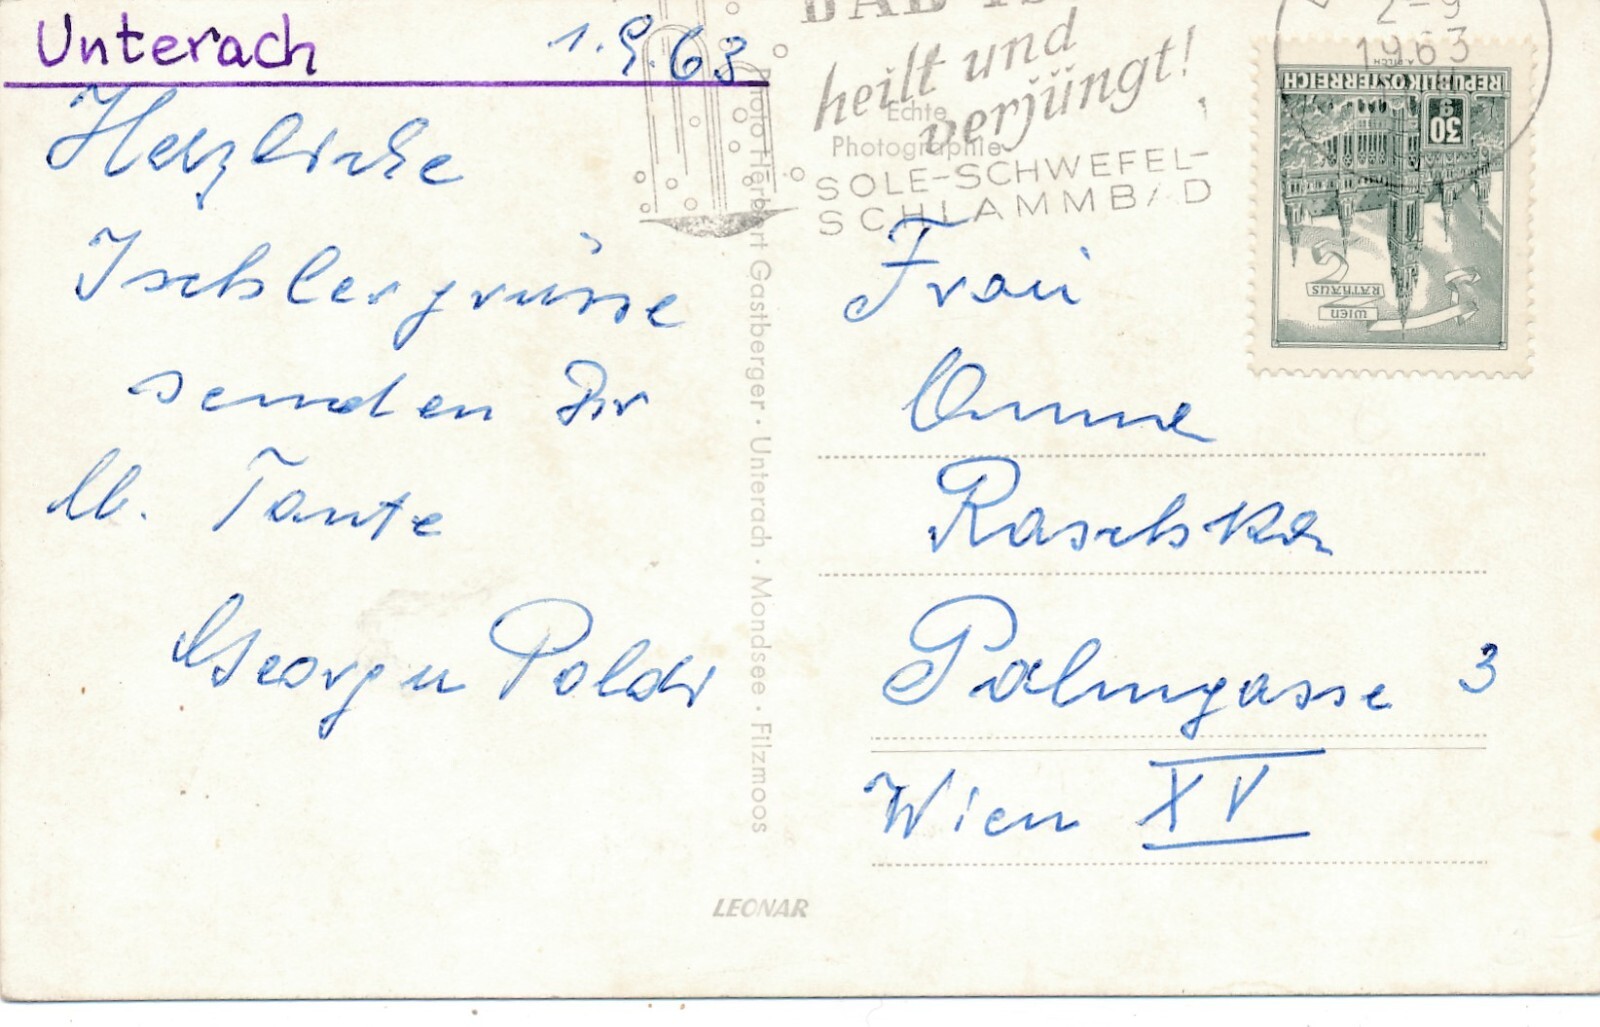 Unterach
1.9.63
Herzliche
Ischlergrüsse
senden Dir
lb. Tante
Georg u Poldi
Photo Herbert Gastberger · Unterach · Mondsee · Filzmoos
LEONAR
heilt und
verjüngt!
SOLE-SCHWEFEL-
SCHLAMMBAD
Echte
Photographie
2-9
1963
REPUBLIK ÖSTERREICH
30 g
WIEN
RATHAUS
Frau
Anna
Raschka
Palmgasse 3
Wien XV